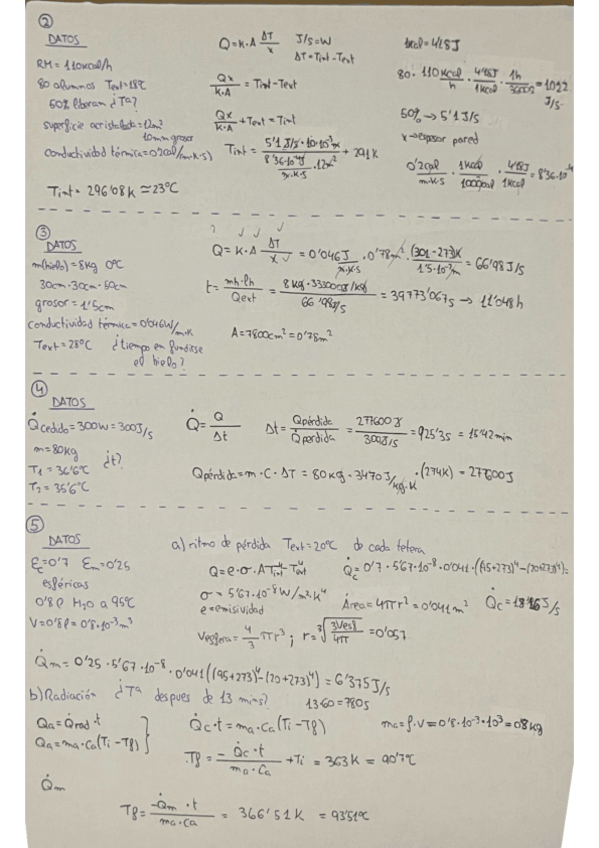 ②
DATOS
RM = 110kcal/h
80 alumnos Text=18ºC
50% liberam ¿Tª?
superficie acristalada=12m²
10mm grosor
conductividad térmica=0'2cal/(m·K·s)
Tint = 296'08 K ≃ 23ºC
Q=K·A ΔT/x J/s=W
ΔT=Tint-Text
Qx/K·A = Tint-Text
Qx/K·A + Text = Tint
Tint = 5'1 J/s · 10·10⁻³m / 8'36·10⁻⁴J/m·K·s · 12m² + 291K
1kcal = 4'18J
80 · 110 kcal/h · 4'18J/1kcal · 1h/3600s = 10'22 J/s
50% → 5'1 J/s
x → espesor pared
0'2cal/m·K·s · 1Kcal/1000cal · 4'18J/1Kcal = 8'36·10⁻⁴
③
DATOS
m(hielo) = 8Kg 0ºC
30cm·30cm·50cm
grosor = 1'5cm
conductividad térmica=0'046W/m·K
Text=28ºC ¿tiempo en fundirse
el hielo?
Q=K·A ΔT/x = 0'046 J/m·K·s · 0'78m² · (301-273)K / 1'5·10⁻²m = 66'98 J/s
t = mh·lh/Qext = 8Kg·333000J/Kg / 66'98J/s = 39773'067s → 11'048h
A=7800cm²=0'78m²
④
DATOS
Q̇cedido=300W=300J/s
m=80kg
T₁ = 36'6ºC ¿t?
T₂ = 35'6ºC
Q̇ = Q/Δt Δt = Qpérdida/Q̇perdida = 277600J/300J/s = 925'3s = 15'42min
Qpérdida=m·C·ΔT = 80Kg·3470J/Kg·K·(274K) = 277600J
⑤
DATOS
Ɛc=0'7 Ɛm=0'25
esféricas
0'8l H₂O a 95ºC
V=0'8l=0'8·10⁻³m³
a) ritmo de pérdida Text=20ºC de cada tetera
Q=e·σ·A Tint⁴-Text⁴ Q̇c=0'7·5'67·10⁻⁸·0'041·((95+273)⁴-(20+273)⁴)=
σ = 5'67·10⁻⁸W/m²·K⁴
e=emisividad
Área=4πr²=0'041m²
Vesfera=4/3πr³ ; r=∛3Vesf/4π = 0'057
Q̇m = 0'25·5'67·10⁻⁸·0'041((95+273)⁴-(20+273)⁴) = 6'375J/s
b) Radiación ¿Tª despues de 13 mins?
13·60=780s
Qa=Q̇rad·t
Qa=ma·Ca(Ti-Tf)
Q̇c·t=ma·Ca(Ti-Tf)
ma=ρ·V=0'8·10⁻³·10³=0'8kg
Tf = -Q̇c·t/ma·Ca + Ti = 363K = 90'7ºC
Q̇m
Tf = -Q̇m·t/ma·ca = 366'51K = 93'51ºC